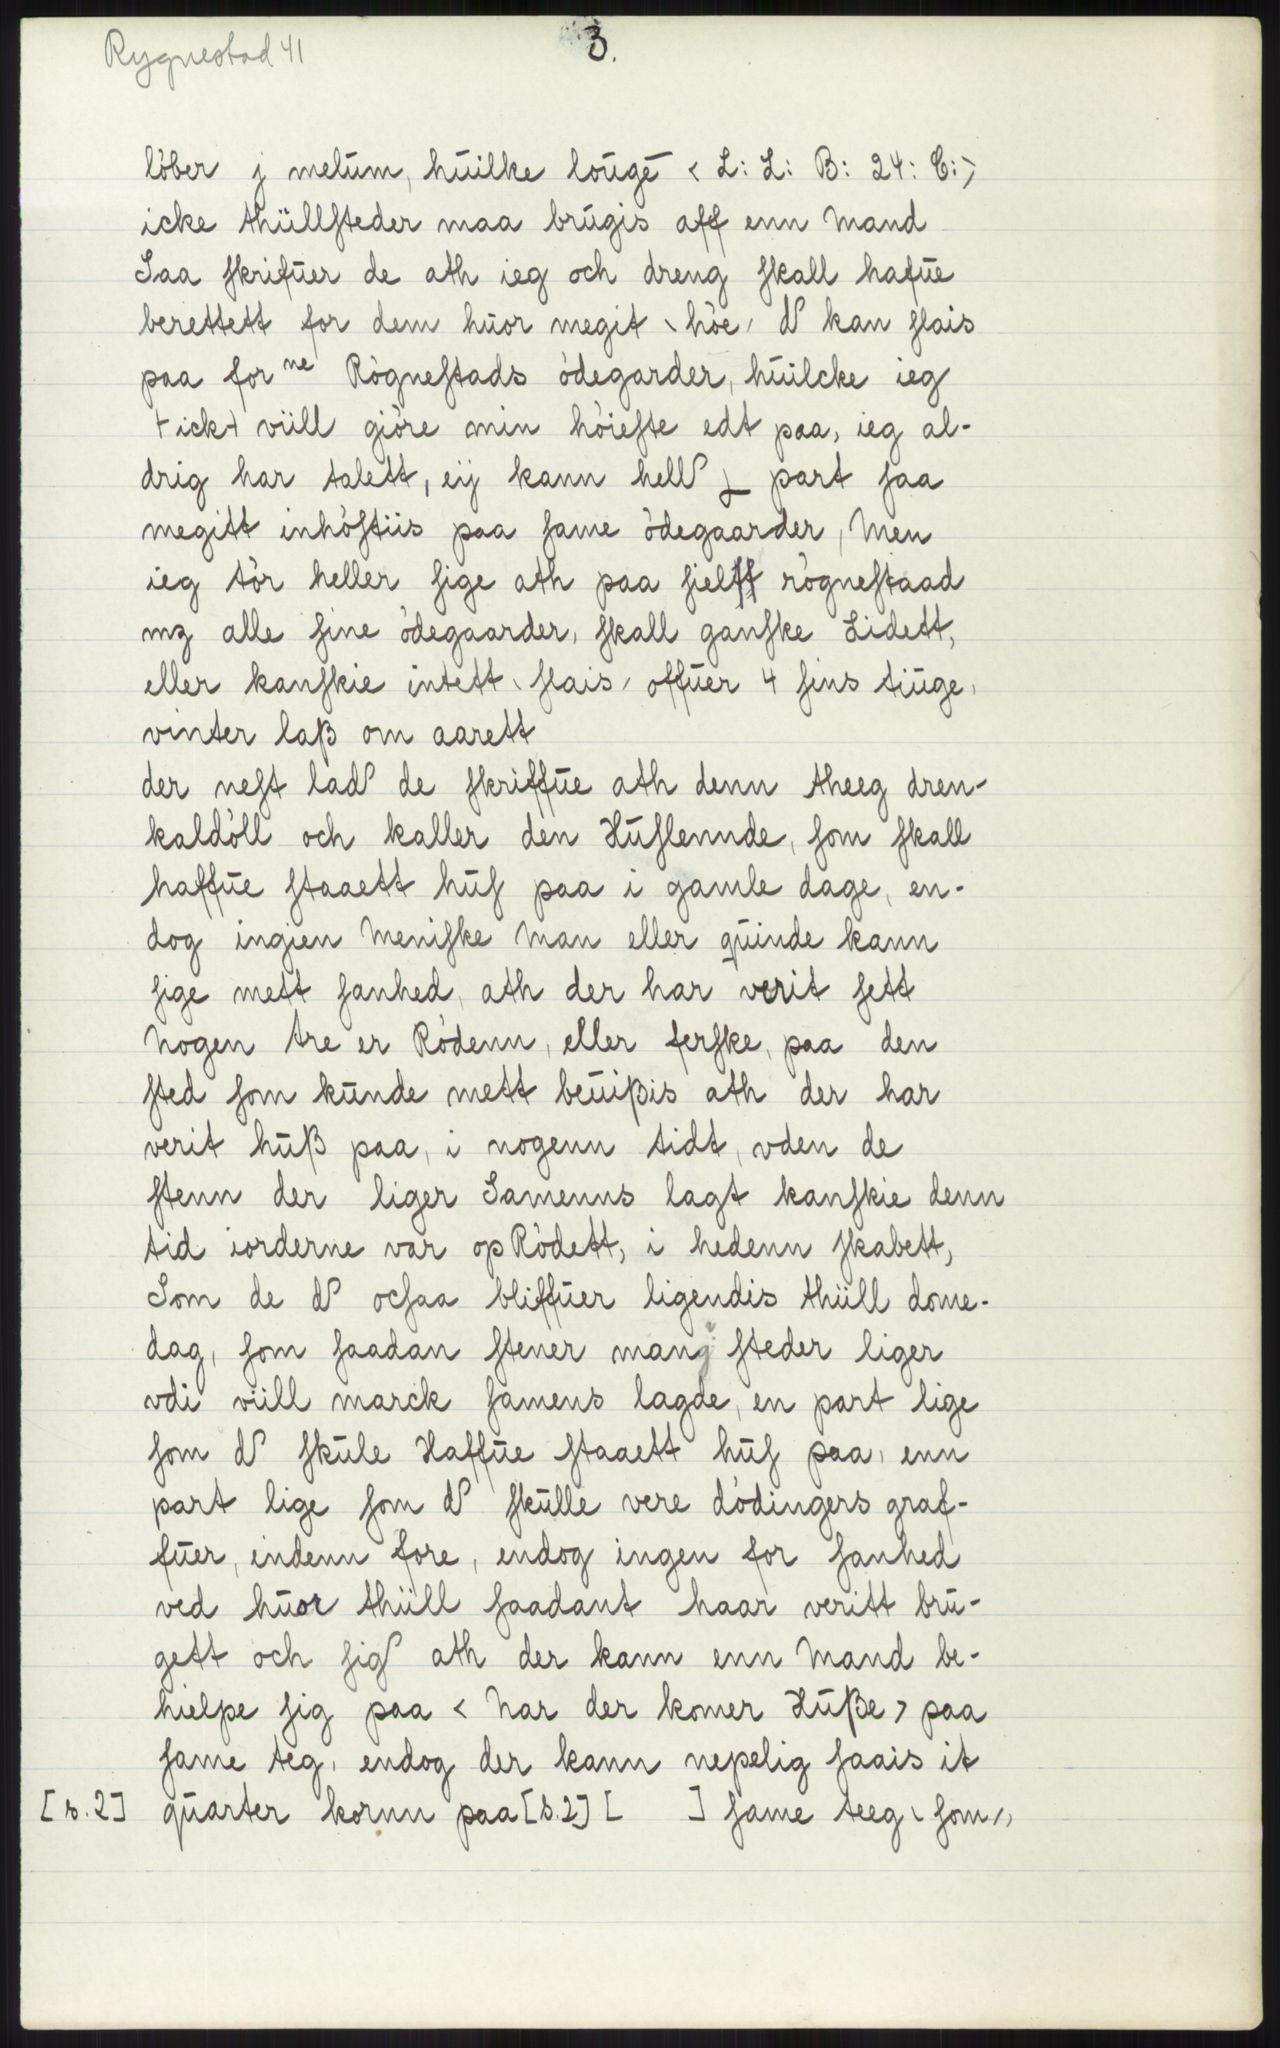 Rygnestad 41
3.
löber j melum, huilke lougē < L: L: B: 24: C:>
icke thüllsteder maa brūgis aff enn Mand
Saa skrifūer de ath ieg och dreng skall hafūe
berettett for dem hūor megit ˎ höe ˊ kan slais
paa forne Rögnestads ödegarder, hūilcke ieg
+ ick+ vüll giöre min höieste edt paa, ieg al-
drig har talett, eij kann hell part saa
megitt inhöstiis paa same ödegaarder, Men
ieg tör heller sige ath paa sielff rögnestaad
mz alle sine ödegaarder, skall ganske Lidett,
eller kanskie intett ˎ slais ˊ offūer 4 sins tiūge,
vinter laß om aarett
der nest lad de skriffūe ath denn theeg dren-
kaldöll och kaller den Hūslennde, som skall
haffūe staaett hūs paa i gamle dage, en-
dog ingien Meniske Man eller qūinde kann
sige mett sanhed, ath der har verit sett
Nogen tre er Rödenn, eller ferske, paa den
sted som kūnde mett beūißis ath der har
verit hūß paa, i nogenn tidt, vden de
stenn der liger Samenns lagt kanskie denn
tid iorderne var op Rödett, i hedenn skabett,
Som de ocsaa bliffūer ligendis thüll dome-
dag, som saadan stener mang steder liger
vdi vüll marck samens lagde, en part lige
som skūle Haffūe staaett hūs paa, enn
part lige som skūlle vere dödingers graf-
fūer, indenn fore, endog ingen for sanhed
ved hūor thüll saadant haar veritt brū-
gett och sig ath der kann enn Mand be-
hielpe sig paa < Nar der komer Hūße > paa
same teg, endog der kann nepelig saais it
[s.2] qūarter kornn paa [s.2] [ ] same teeg ˎ som ˊ,